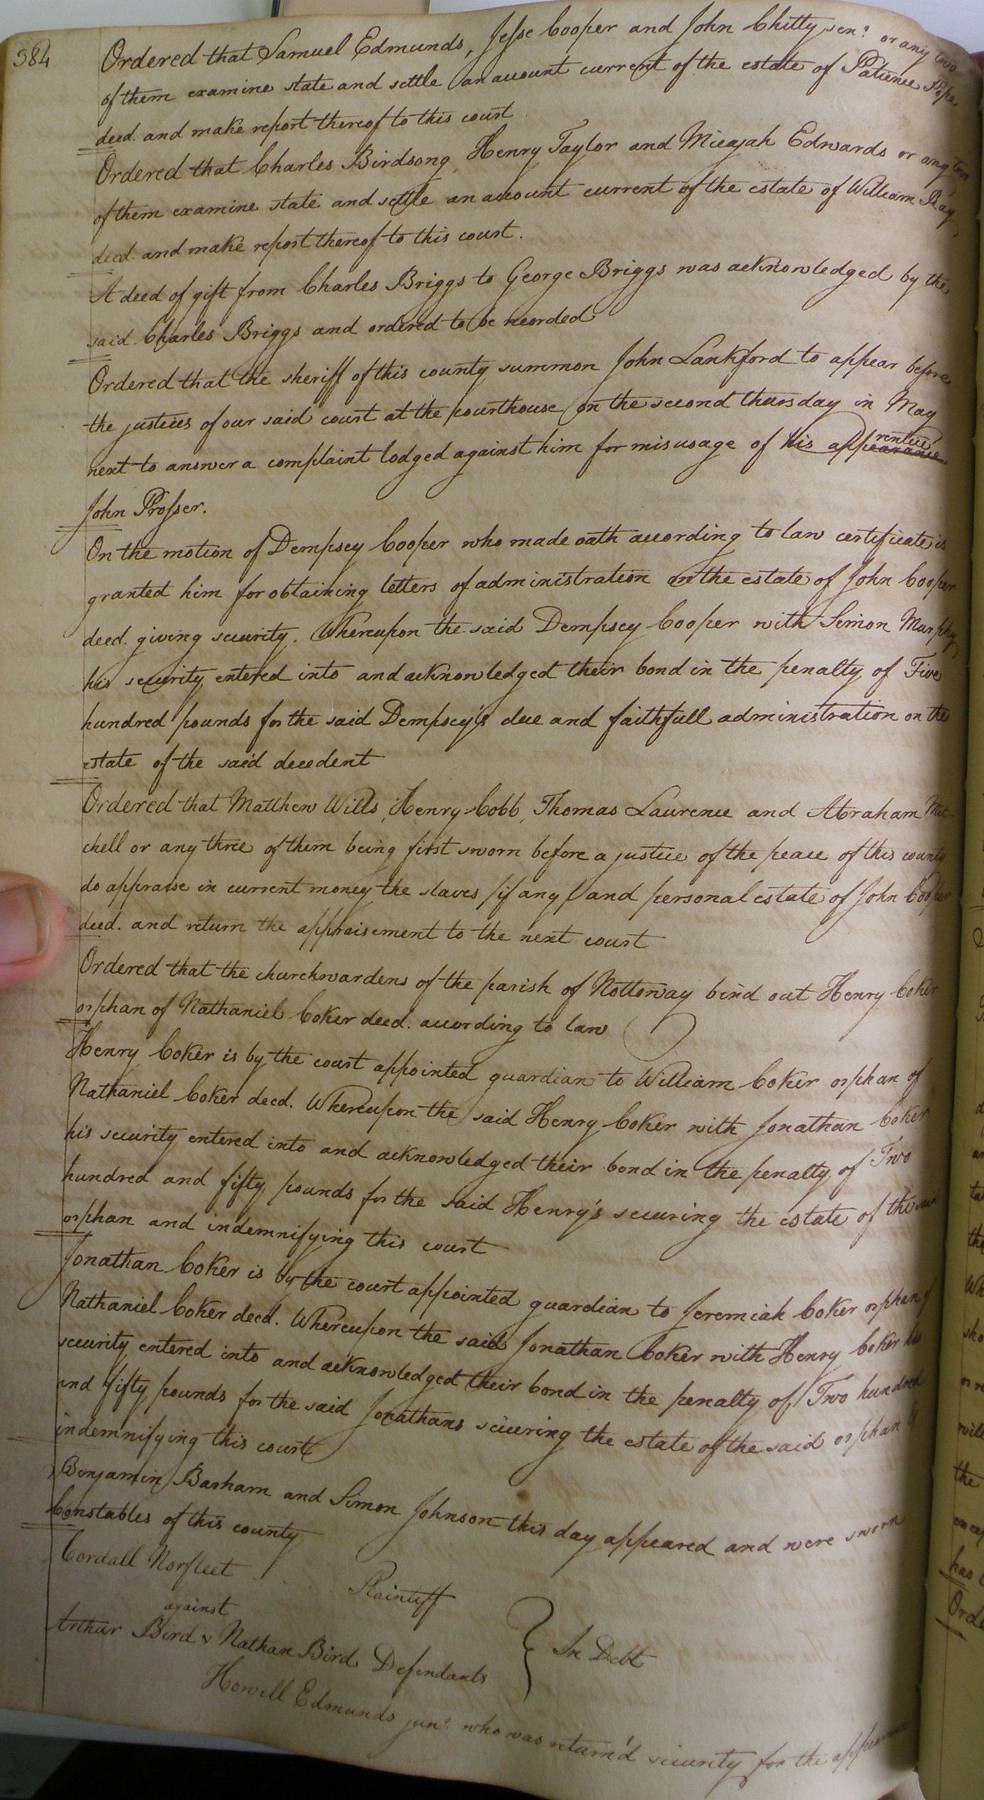 384
Ordered that Samuel Edmunds, Jesse Cooper and John Chitty senr. or any two
of them examine state and settle an account current of the estate of Patience Pope
deed. and make report thereof to this court
Ordered that Charles Birdsong, Henry Taylor and Micajah Edwards or any two
of them examine state and settle an account current of the estate of William Ray
deed. and make report thereof to this court.
A deed of gift from Charles Briggs to George Briggs was acknowledged by the
said Charles Briggs and ordered to be recorded
Ordered that the sheriff of this county summon John Lankford to appear before
the justices of our said court at the courthouse on the second thursday in May
next to answer a complaint lodged against him for misusage of his apprentice
John Prosser.
On the motion of Dempsey Cooper who made oath according to law certificate is
granted him for obtaining letters of administration on the estate of John Cooper
deed. giving security. Whereupon the said Dempsey Cooper with Simon Murphy
his security entered into and acknowledged their bond in the penalty of Five
hundred pounds for the said Dempsey's due and faithfull administration on the
estate of the said decedent
Ordered that Matthew Wills, Henry Cobb, Thomas Laurence and Abraham Mit-
chell or any three of them being first sworn before a justice of the peace of this county
do appraise in current money the slaves (if any) and personal estate of John Cooper
deed. and return the appraisement to the next court
Ordered that the churchwardens of the parish of Nottoway bind out Henry Coker
orphan of Nathaniel Coker deed. according to law
Henry Coker is by the court appointed guardian to William Coker orphan of
Nathaniel Coker deed. Whereupon the said Henry Coker with Jonathan Coker
his security entered into and acknowledged their bond in the penalty of Two
hundred and fifty pounds for the said Henry's securing the estate of the said
orphan and indemnifying this court
Jonathan Coker is by the court appointed guardian to Jeremiah Coker orphan of
Nathaniel Coker deed. Whereupon the said Jonathan Coker with Henry Coker his
security entered into and acknowledged their bond in the penalty of Two hundred
and fifty pounds for the said Jonathans securing the estate of the said orphan &
indemnifying this court
Benjamin Barham and Simon Johnson this day appeared and were sworn
Constables of this county
Cordall Norfleet Plaintiff
against
In Debt
Arthur Bird & Nathan Bird Defendants
Howell Edmunds junr. who was return'd security for the appearance